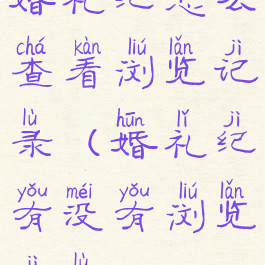 婚礼纪怎么
chá kàn liú lǎn jì
查看浏览记
lù hūn lǐ jì
录(婚礼纪
yǒu méi yǒu liú lǎn
有没有浏览
jì lù